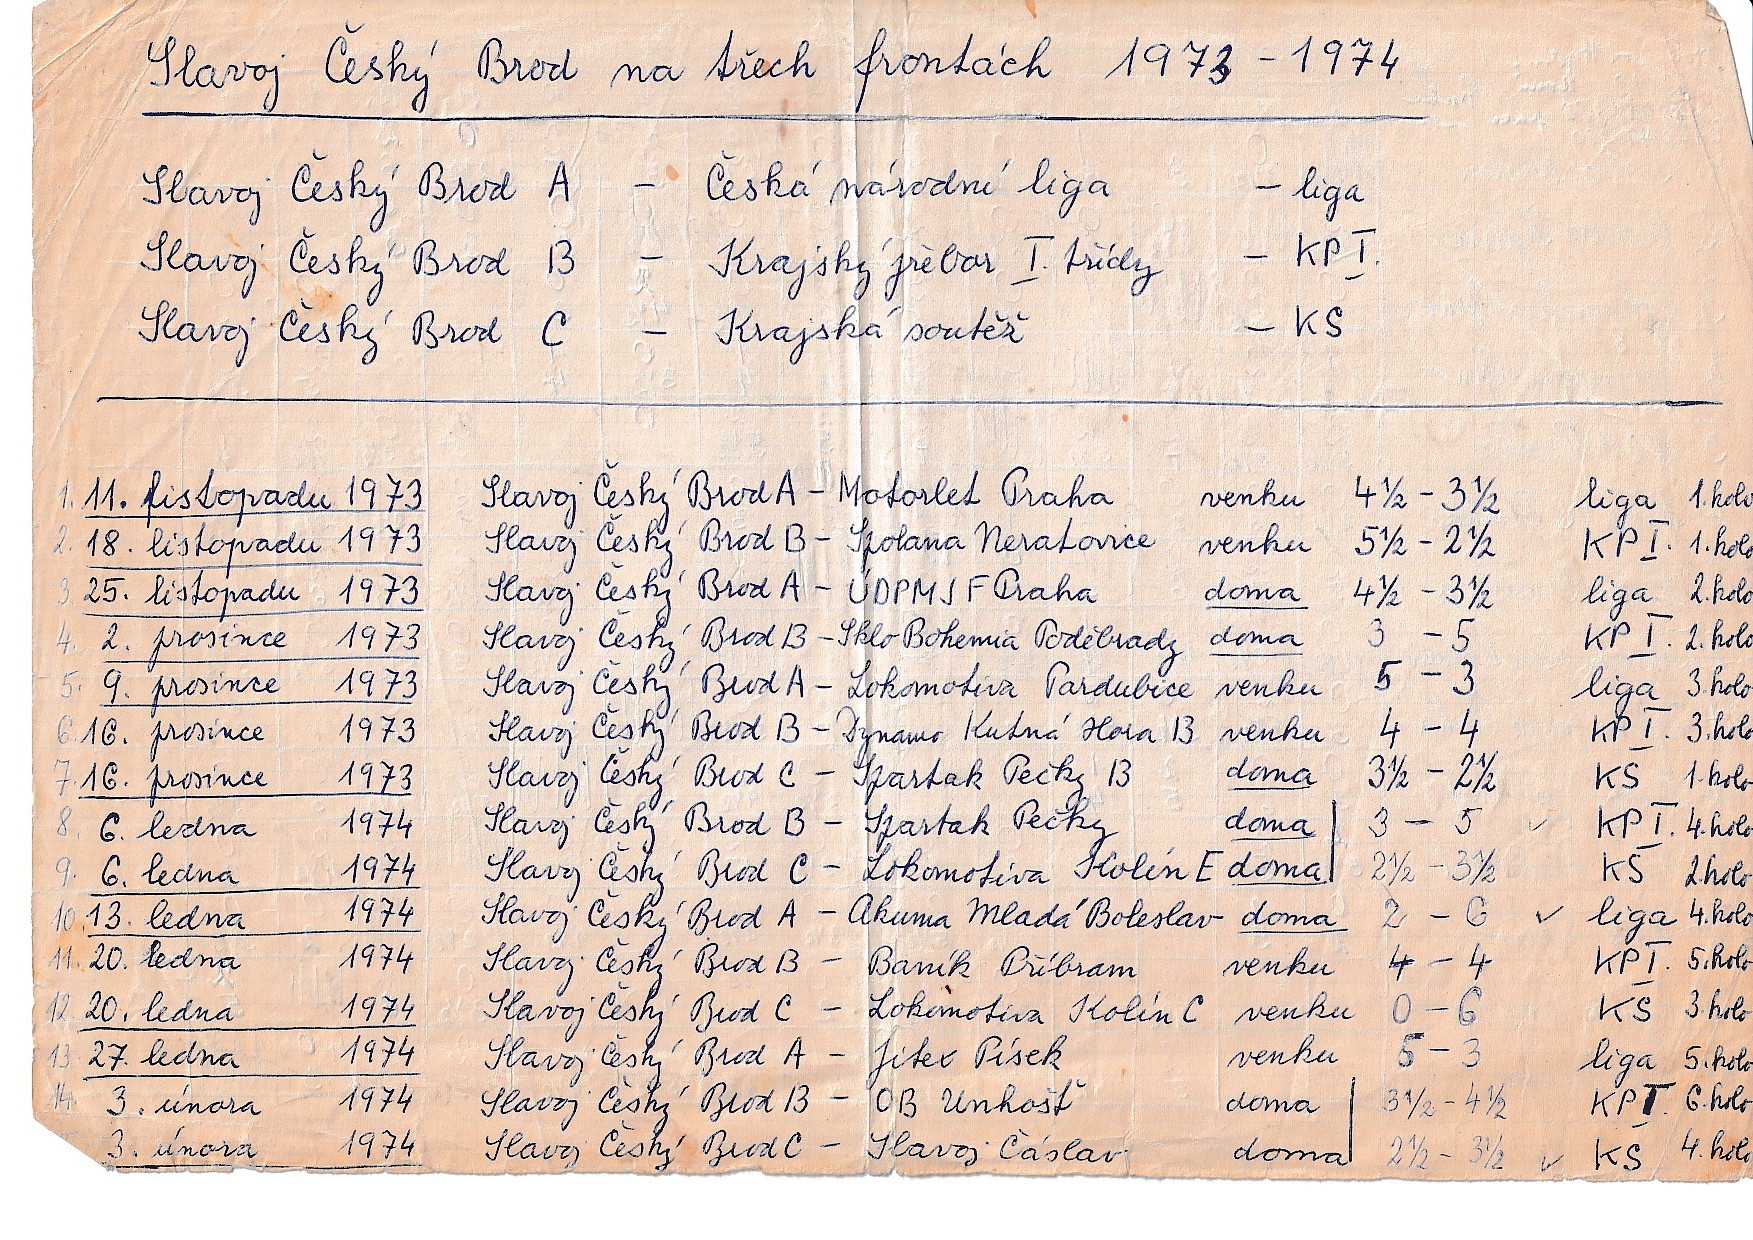 Slavoj Český Brod na třech frontách 1973 - 1974
Slavoj Český Brod A - Česká národní liga - liga
Slavoj Český Brod B - Krajský přebor I. třídy - KP I.
Slavoj Český Brod C - Krajská soutěž - KS
1. 11. listopadu 1973 Slavoj Český Brod A - Motorlet Praha venku 4½ - 3½ liga 1. kolo
2. 18. listopadu 1973 Slavoj Český Brod B - Spolana Neratovice venku 5½ - 2½ KP I. 1. kolo
3. 25. listopadu 1973 Slavoj Český Brod A - ÚDPMJF Praha doma 4½ - 3½ liga 2. kolo
4. 2. prosince 1973 Slavoj Český Brod B - Sklo Bohemia Poděbrady doma 3 - 5 KP I. 2. kolo
5. 9. prosince 1973 Slavoj Český Brod A - Lokomotiva Pardubice venku 5 - 3 liga 3. kolo
6. 16. prosince 1973 Slavoj Český Brod B - Dynamo Kutná Hora B venku 4 - 4 KP I. 3. kolo
7. 16. prosince 1973 Slavoj Český Brod C - Spartak Pečky B doma 3½ - 2½ KS 1. kolo
8. 6. ledna 1974 Slavoj Český Brod B - Spartak Pečky doma 3 - 5 ✓ KP I. 4. kolo
9. 6. ledna 1974 Slavoj Český Brod C - Lokomotiva Kolín E doma 2½ - 3½ KS 2. kolo
10. 13. ledna 1974 Slavoj Český Brod A - Akuma Mladá Boleslav doma 2 - 6 ✓ liga 4. kolo
11. 20. ledna 1974 Slavoj Český Brod B - Baník Příbram venku 4 - 4 KP I. 5. kolo
12. 20. ledna 1974 Slavoj Český Brod C - Lokomotiva Kolín C venku 0 - 6 KS 3. kolo
13. 27. ledna 1974 Slavoj Český Brod A - Jitex Písek venku 5 - 3 liga 5. kolo
14. 3. února 1974 Slavoj Český Brod B - OB Unhošť doma 3½ - 4½ KP I. 6. kolo
3. února 1974 Slavoj Český Brod C - Slavoj Čáslav doma 2½ - 3½ ✓ KS 4. kolo